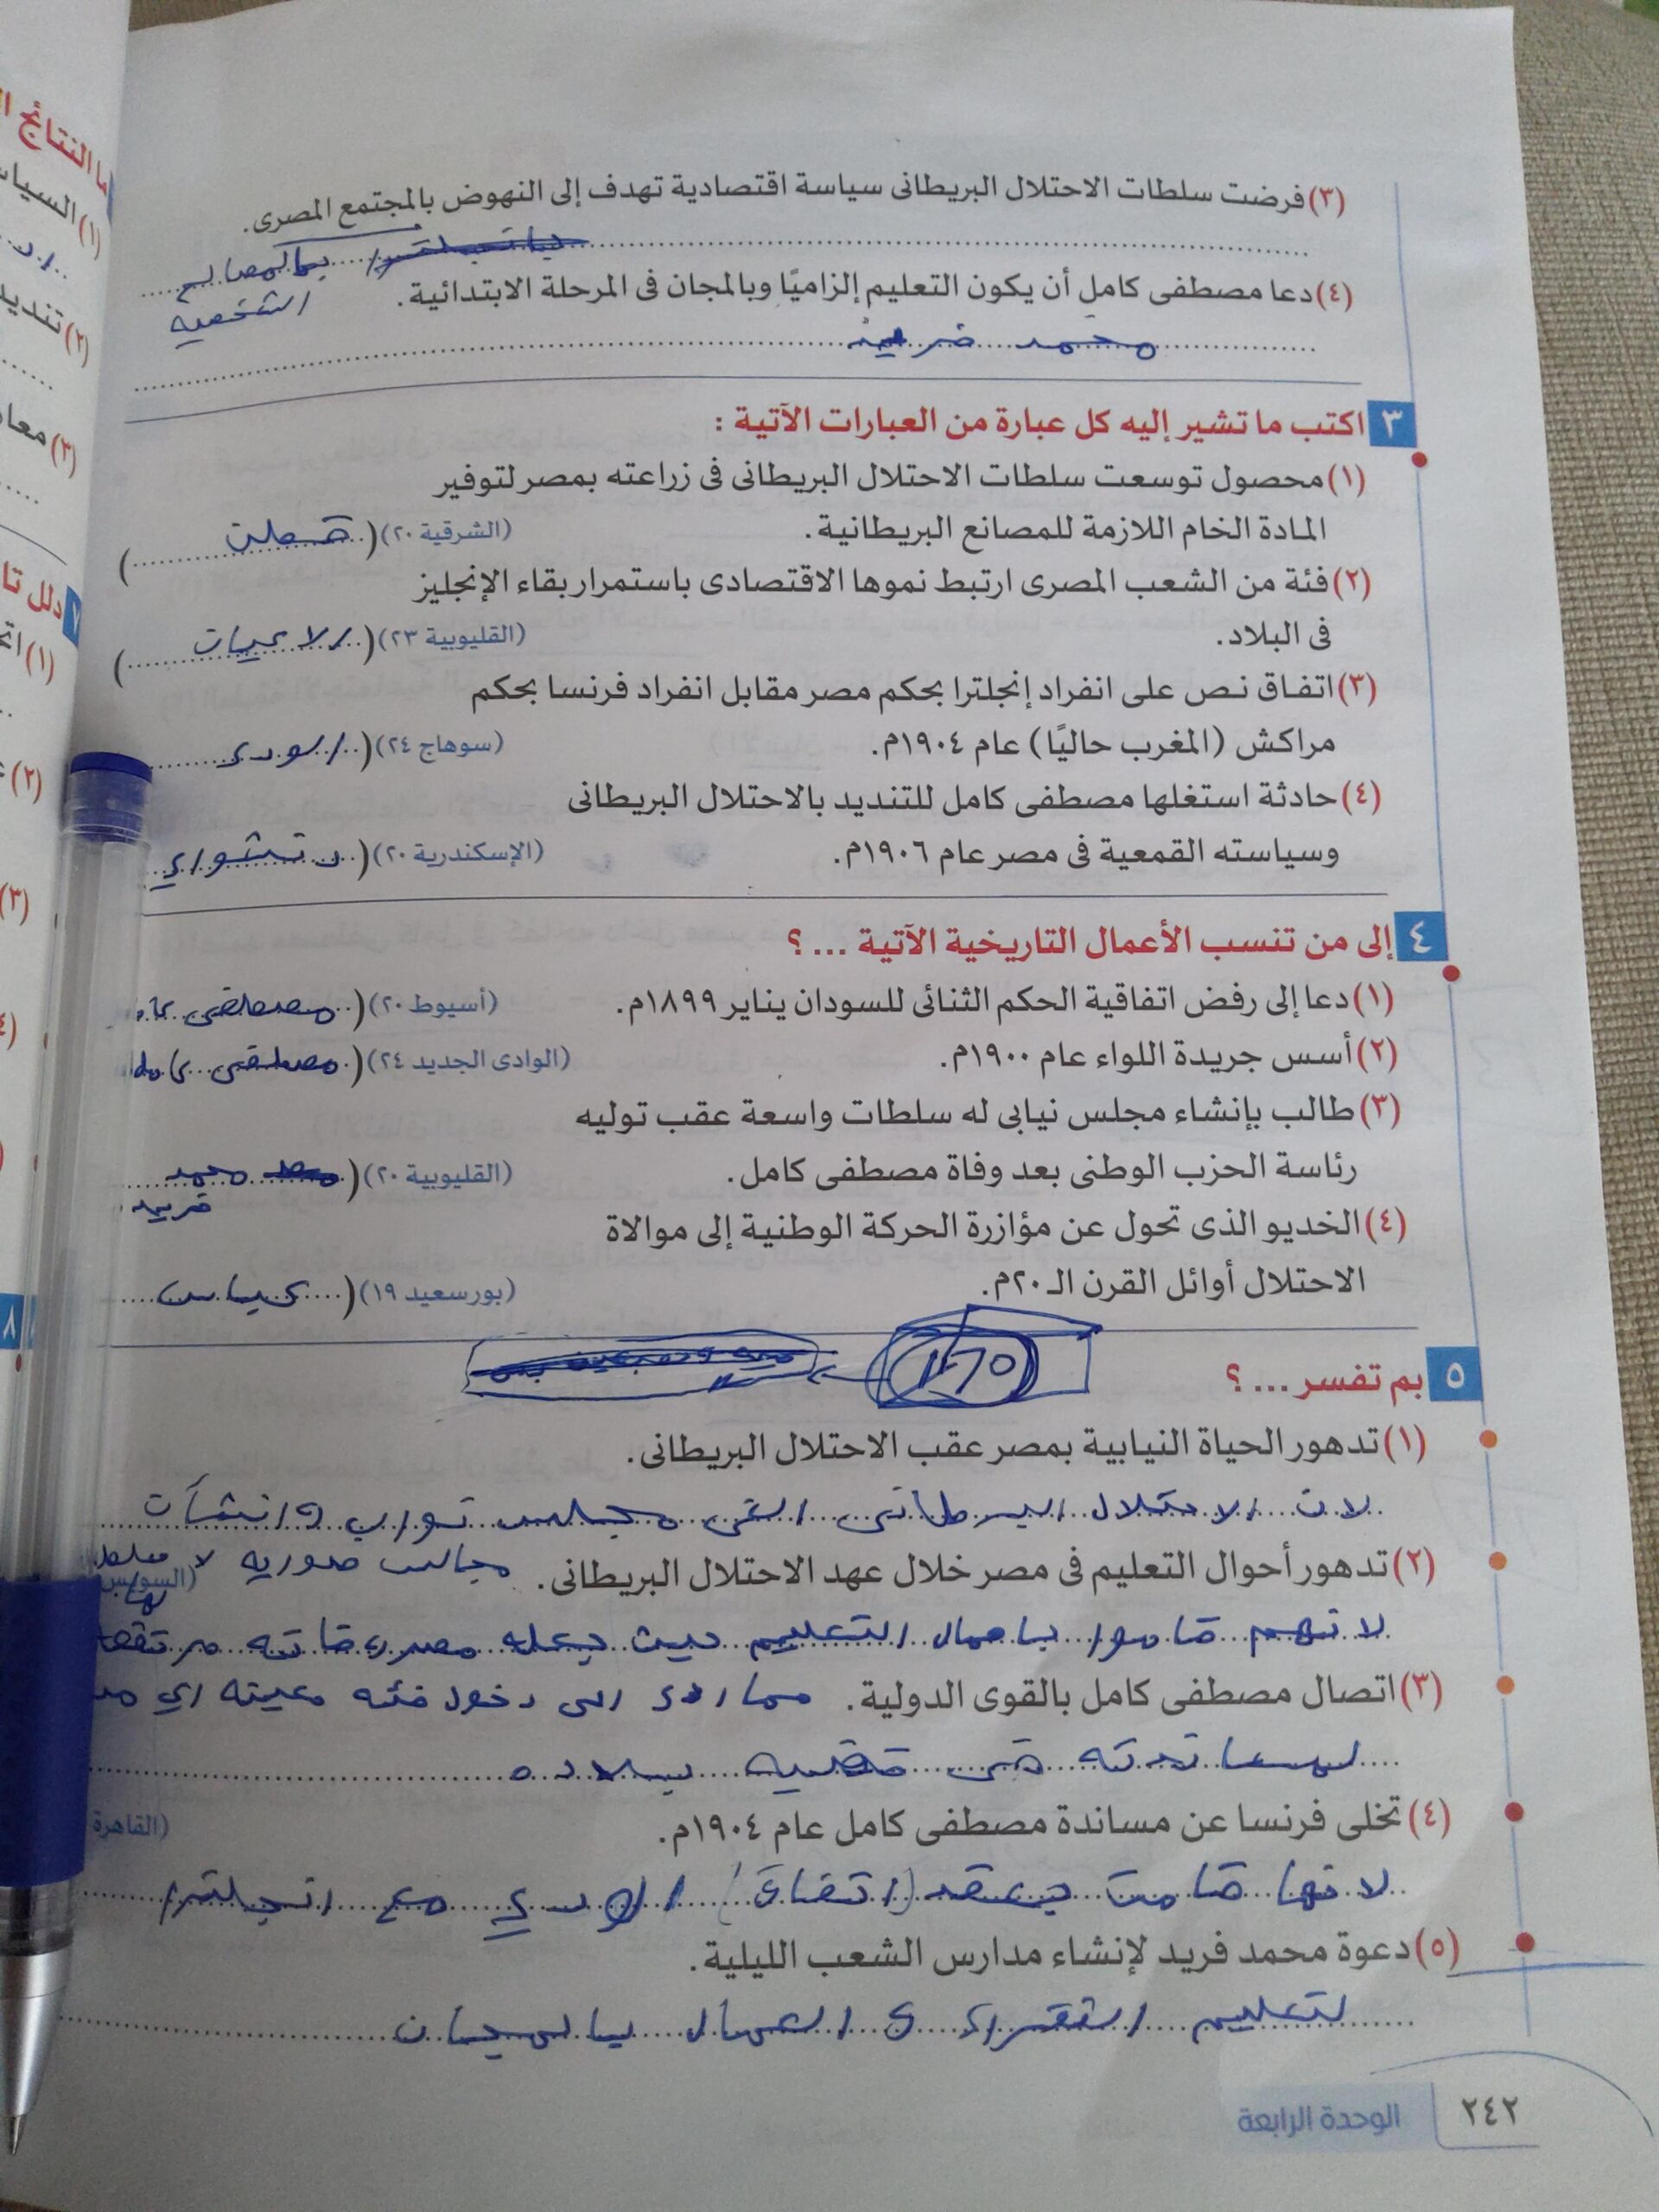 (٣) فرضت سلطات الاحتلال البريطانى سياسة اقتصادية تهدف إلى النهوض بالمجتمع المصرى.
بالمصالح
الشخصيه
(٤) دعا مصطفى كامل أن يكون التعليم إلزاميًا وبالمجان فى المرحلة الابتدائية.
محمد فريد
٣ اكتب ما تشير إليه كل عبارة من العبارات الآتية :
(١) محصول توسعت سلطات الاحتلال البريطانى فى زراعته بمصر لتوفير
المادة الخام اللازمة للمصانع البريطانية. (الشرقية ٢٠) (قطن)
(٢) فئة من الشعب المصرى ارتبط نموها الاقتصادى باستمرار بقاء الإنجليز
فى البلاد. (القليوبية ٢٣) (الاعيان)
(٣) اتفاق نص على انفراد إنجلترا بحكم مصر مقابل انفراد فرنسا بحكم
مراكش (المغرب حاليًا) عام ١٩٠٤م. (سوهاج ٢٤) (الودى
(٤) حادثة استغلها مصطفى كامل للتنديد بالاحتلال البريطانى
وسياسته القمعية فى مصر عام ١٩٠٦م. (الإسكندرية ٢٠) (دنشواي
٤ إلى من تنسب الأعمال التاريخية الآتية ...؟
(١) دعا إلى رفض اتفاقية الحكم الثنائى للسودان يناير ١٨٩٩م. (أسيوط ٢٠) (مصطفى كا
(٢) أسس جريدة اللواء عام ١٩٠٠م. (الوادى الجديد ٢٤) (مصطفى كامل
(٣) طالب بإنشاء مجلس نيابى له سلطات واسعة عقب توليه
رئاسة الحزب الوطنى بعد وفاة مصطفى كامل. (القليوبية ٢٠) (محمد
فريد
(٤) الخديو الذى تحول عن مؤازرة الحركة الوطنية إلى موالاة
الاحتلال أوائل القرن الـ ٢٠م. (بورسعيد ١٩) (عباس
٥ بم تفسر ...؟
(١) تدهور الحياة النيابية بمصر عقب الاحتلال البريطانى.
لان الاحتلال البريطانى الغى مجلس نواب و انشأت
مجالس صوريه لا سلطه
لها
(٢) تدهور أحوال التعليم فى مصر خلال عهد الاحتلال البريطانى. (السويس
لانهم قاموا باهمال التعليم حيث جعله مصروفاته مرتفعه
مما ادى الى دخول فئه معينه
(٣) اتصال مصطفى كامل بالقوى الدولية.
لمساندته فى قضيه بلاده
(٤) تخلى فرنسا عن مساندة مصطفى كامل عام ١٩٠٤م. (القاهرة
لانها قامت بعقد (اتفاق) الودي مع انجلترا
(٥) دعوة محمد فريد لإنشاء مدارس الشعب الليلية.
لتعليم الفقراء و العمال بالمجان
٢٤٢ الوحدة الرابعة
ما النتائج
(١) السياس
(٢) تنديد
(٣) معا
٧ دلل تا
(١) ات
(٢)
(٣)
٨